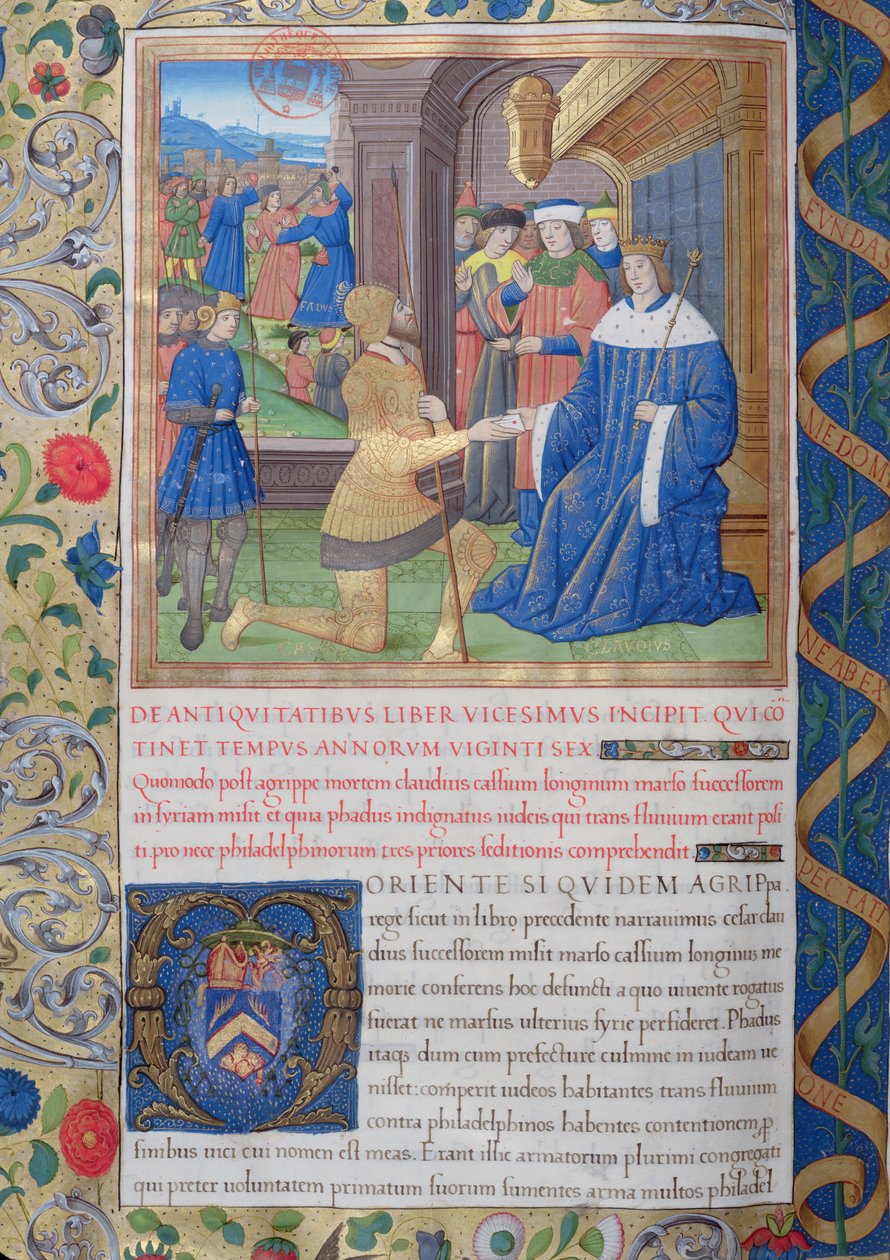 ANTHIBA
FADVS
CA
CLAVDIVS
DE ANTIQVITATIBVS LIBER VICESIMVS INCIPIT. QVI CŌ
TINET TEMPVS ANNORVM VIGINTI SEX
Quomodo post agrippe mortem claudius cassium longinum marso successorem
in syriam misit et quia phadus indignatus iudeis qui trans fluuium erant posi
ti. pro nece philadelphinorum tres priores seditionis comprehendit
MORIENTE SIQVIDEM AGRIPpa.
rege sicut in libro precedente narrauimus cesar clau
dius successorem misit marso cassium longinum me
morie conferens hoc defuncti a quo uiuente rogatus
fuerat ne marsus ulterius syrie persideret. Phadus
itaqs dum cum prefecture culmine in iudeam ue
nisset: comperit iudeos habitantes trans fluuium
contra philadelphinos habentes contentionem ꝓ
finibus uici cui nomen est meas. Erant illic armatorum plurimi congregati
qui preter uoluntatem primatum suorum sumentes arma multos philadel
FVNDAS
ME DOMI
NE AB EX
PECTATI
ONE